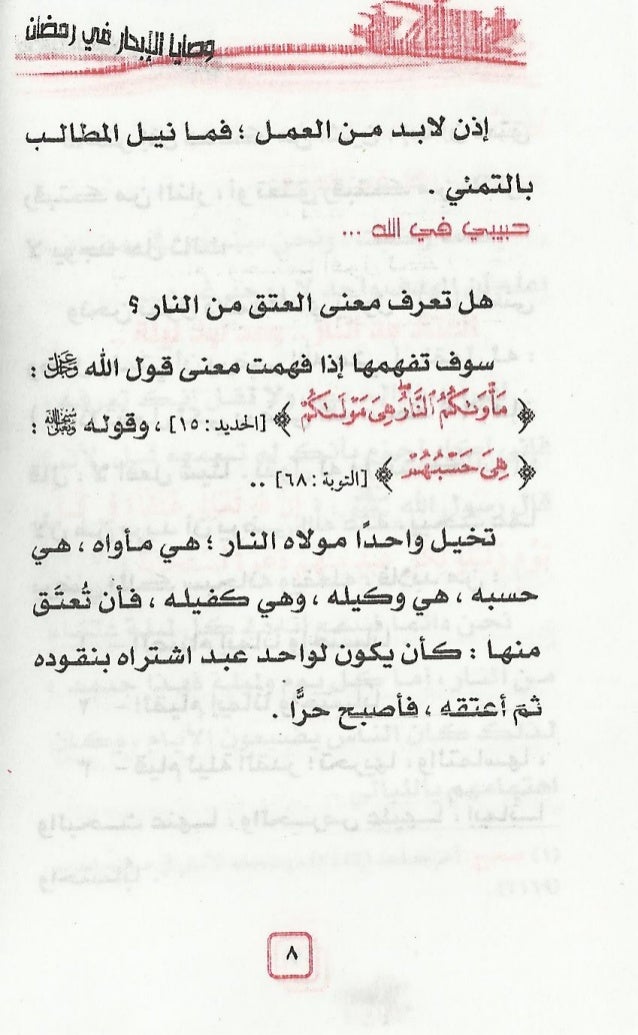 وصايا الإبحار في رمضان
إذن لابد من العمل ؛ فما نيل المطالب
بالتمني .
حبيبي في الله ...
هل تعرف معنى العتق من النار ؟
سوف تفهمها إذا فهمت معنى قول الله ﷿ :
﴿ مَأْوَىٰكُمُ ٱلنَّارُ ۖ هِىَ مَوْلَىٰكُمْ ﴾ [الحديد : ١٥] ، وقوله :
﴿ هِىَ حَسْبُهُمْ ﴾ [التوبة : ٦٨] ..
تخيل واحدًا مولاه النار ؛ هي مأواه ، هي
حسبه ، هي وكيله ، وهي كفيله ، فأن تُعتَق
منها : كأن يكون لواحد عبد اشتراه بنقوده
ثم أعتقه ، فأصبح حرًّا .
٨